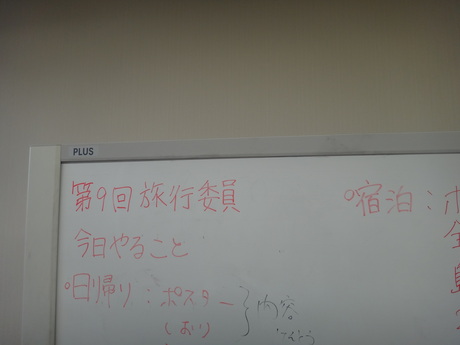 PLUS
第9回旅行委員
今日やること
○日帰り：ポスター } 内容
(しおり)
○宿泊：ホ
全
島